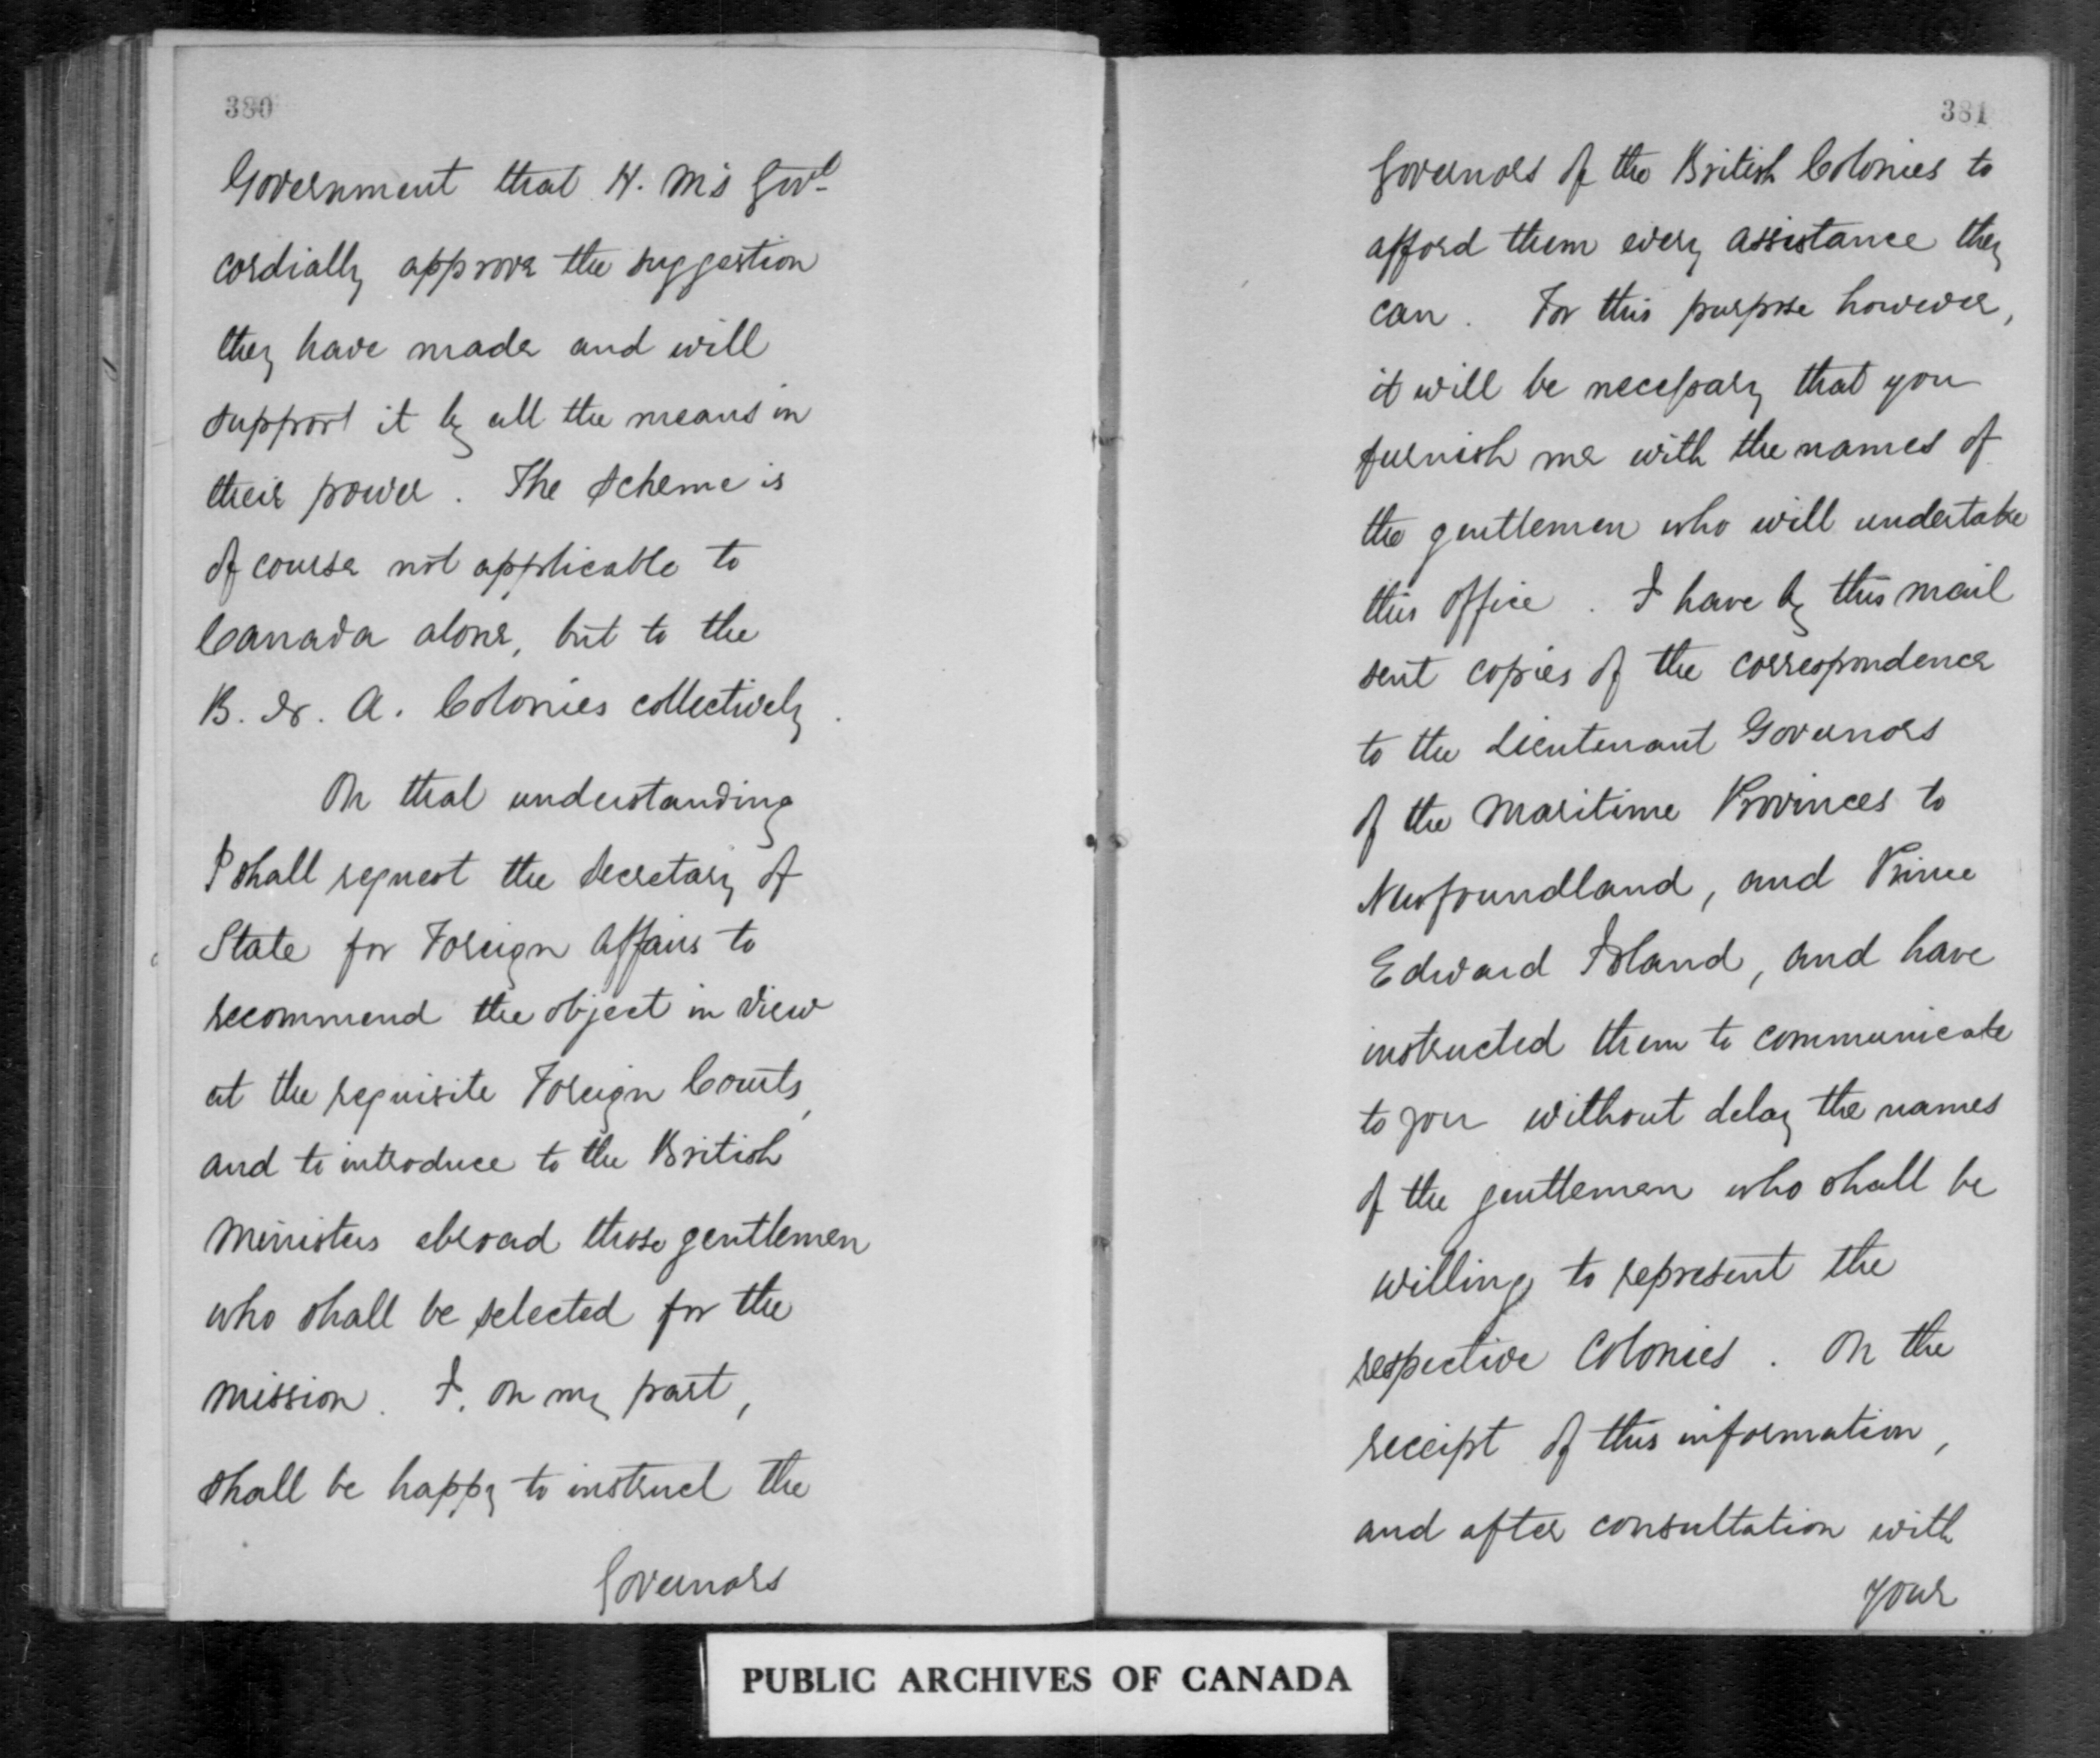 380
Government that H. M's Govt
cordially approve the suggestion
they have made and will
support it by all the means in
their power. The scheme is
of course not applicable to
Canada alone, but to the
B. N. A. Colonies collectively.
On that understanding
I shall request the Secretary of
State for Foreign Affairs to
recommend the object in view
at the requisite Foreign Courts,
and to introduce to the British
Ministers abroad those gentlemen
who shall be selected for the
mission. I, on my part,
shall be happy to instruct the
Governors
381
Governors of the British Colonies to
afford them every assistance they
can. For this purpose however,
it will be necessary that you
furnish me with the names of
the gentlemen who will undertake
this office. I have by this mail
sent copies of the correspondence
to the Lieutenant Governors
of the Maritime Provinces to
Newfoundland, and Prince
Edward Island, and have
instructed them to communicate
to you without delay the names
of the gentlemen who shall be
willing to represent the
respective Colonies. On the
receipt of this information,
and after consultation with
your
PUBLIC ARCHIVES OF CANADA